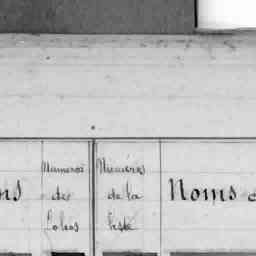 Numéros
de
Folios
Numéros
de la
liste
Noms